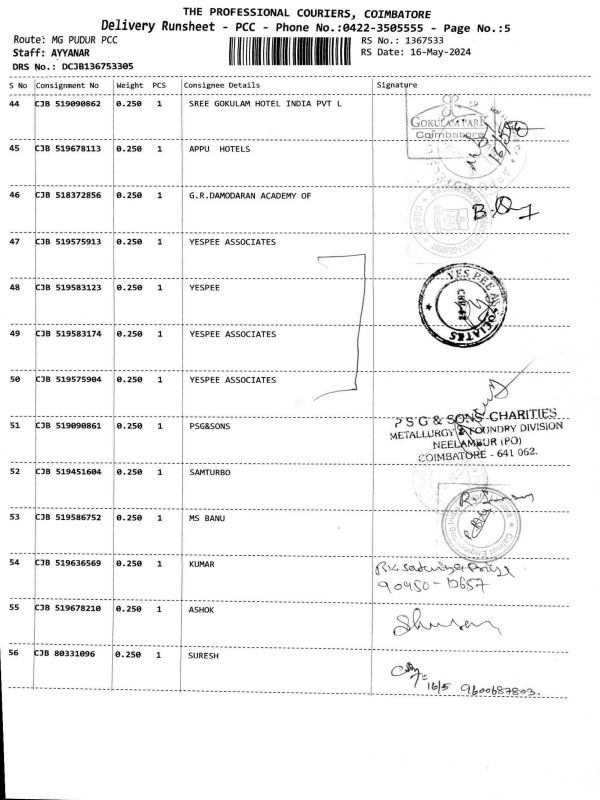 THE PROFESSIONAL COURIERS, COIMBATORE
Delivery Runsheet - PCC - Phone No.:0422-3505555 - Page No.:5
Route: MG PUDUR PCC
RS No.: 1367533
Staff: AYYANAR
RS Date: 16-May-2024
DRS No.: DCJB136753305
S No Consignment No Weight PCS Consignee Details Signature
44 CJB 519090862 0.250 1 SREE GOKULAM HOTEL INDIA PVT L
GOKULAM PARK
Coimbatore
16/5
45 CJB 519678113 0.250 1 APPU HOTELS
46 CJB 518372856 0.250 1 G.R.DAMODARAN ACADEMY OF
47 CJB 519575913 0.250 1 YESPEE ASSOCIATES
48 CJB 519583123 0.250 1 YESPEE
YES PEE ASSOCIATES
49 CJB 519583174 0.250 1 YESPEE ASSOCIATES
50 CJB 519575904 0.250 1 YESPEE ASSOCIATES
51 CJB 519090861 0.250 1 PSG&SONS
P S G & SONS CHARITIES
METALLURGY & FOUNDRY DIVISION
NEELAMBUR (PO)
COIMBATORE - 641 062.
52 CJB 519451604 0.250 1 SAMTURBO
53 CJB 519586752 0.250 1 MS BANU
54 CJB 519636569 0.250 1 KUMAR
55 CJB 519678210 0.250 1 ASHOK
56 CJB 80331096 0.250 1 SURESH
16/5 9600687803.